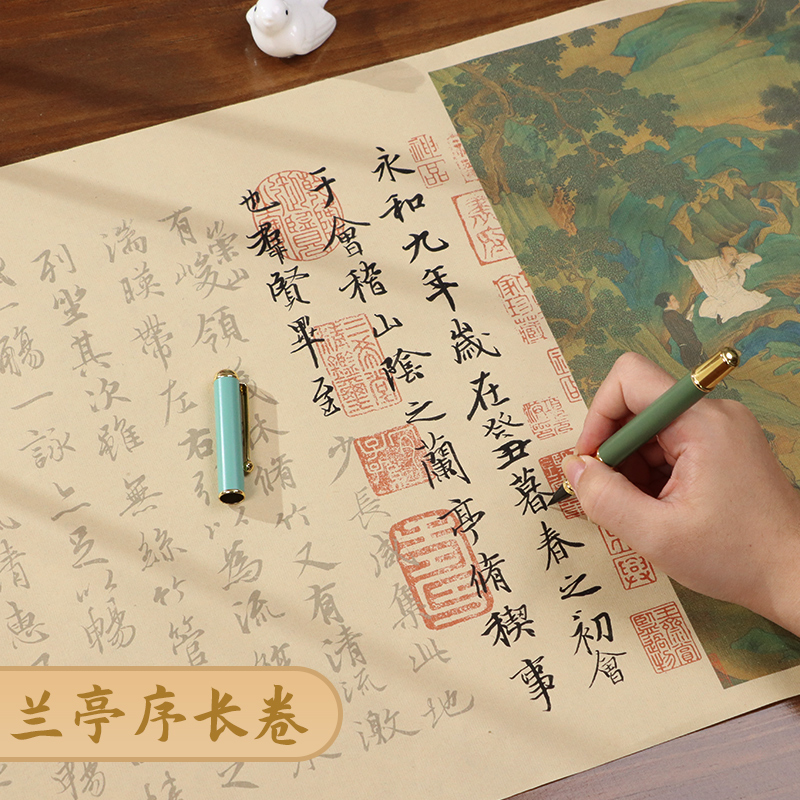 永和九年歲在癸丑暮春之初會
于會稽山陰之蘭亭脩稧事
也羣賢畢至少長咸集此地
有崇山峻領茂林脩竹又有清流激
湍暎帶左右引以為流
列坐其次雖無絲竹管
一觴一詠亦足以暢
清惠
神品
兰亭序长卷